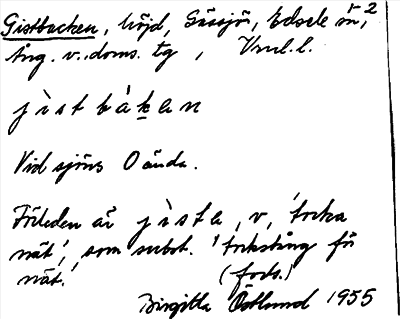 Gistbacken, höjd, Gåssjö, Edsele sn, 2
Ång. v. doms. tg, Vnrl. l.
jìstbàken
Vid sjöns O ända.
Förleden är jìsta, v, 'torka
nät', som subst. 'torkstång för
nät.' (forts.)
Birgitta Östlund 1955